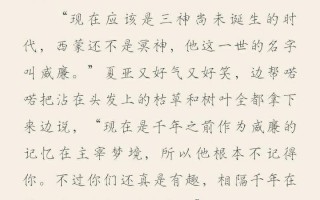 “现在应该是三神尚未诞生的时
代，西蒙还不是冥神，他这一世的名字
叫威廉。”夏亚又好气又好笑，边帮喏
喏把沾在头发上的枯草和树叶全都拿下
来边说，“现在是千年之前作为威廉的
记忆在主宰梦境，所以他根本不记得
你。不过你们还真是有趣，相隔千年在